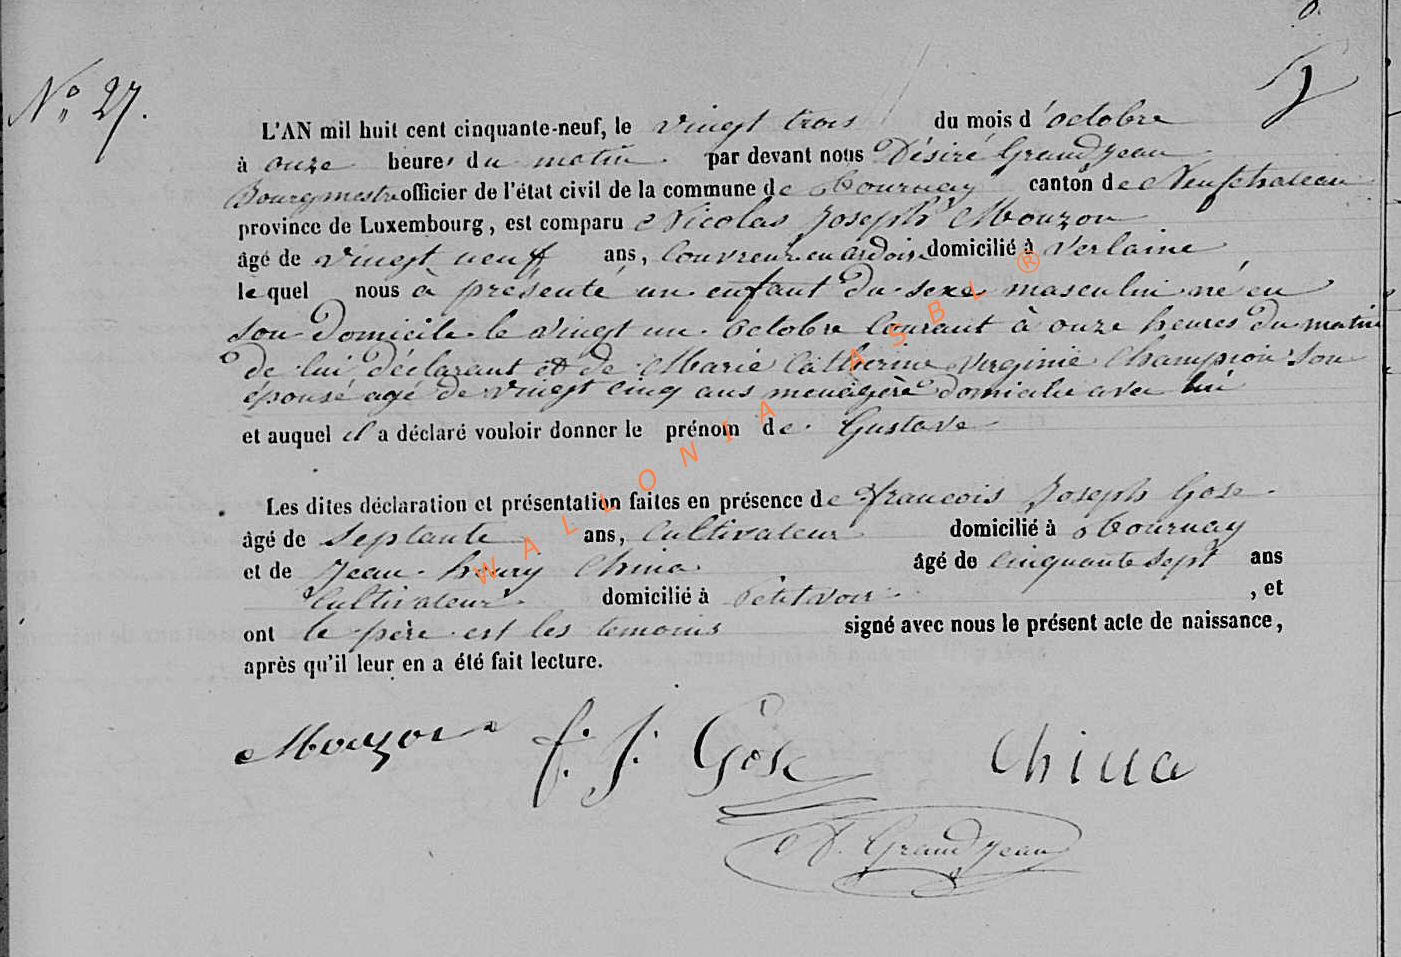 No 27.
L'AN mil huit cent cinquante-neuf, le vingt trois du mois d'octobre
à onze heures du matin par devant nous Désiré Grandjean
Bourgmestre officier de l'état civil de la commune de Tournay canton de Neufchateau
province de Luxembourg, est comparu Nicolas Joseph Mouzon
âgé de vingt neuf ans, Couvreur en ardoise domicilié à Verlaine
lequel nous à présenté un enfant du sexe masculin né en
son Domicile le vingt un octobre Courant à onze heures du matin
de lui déclarant et de Marie Catherine Virginie Champion son
épouse agé de vingt cinq ans menagère domicilié avec lui
et auquel il a déclaré vouloir donner le prénom de Gustave
Les dites déclaration et présentation faites en présence de francois Joseph Gose
âgé de Septante ans, Cultivateur domicilié à Tournay
et de Jean henry China âgé de cinquante sept ans
Cultivateur domicilié à Petitvoir, et
ont le père est les temoins signé avec nous le présent acte de naissance,
après qu'il leur en a été fait lecture.
Mouzon f. J. Gose China
D. Grandjean
WALLONIA ASBL ®